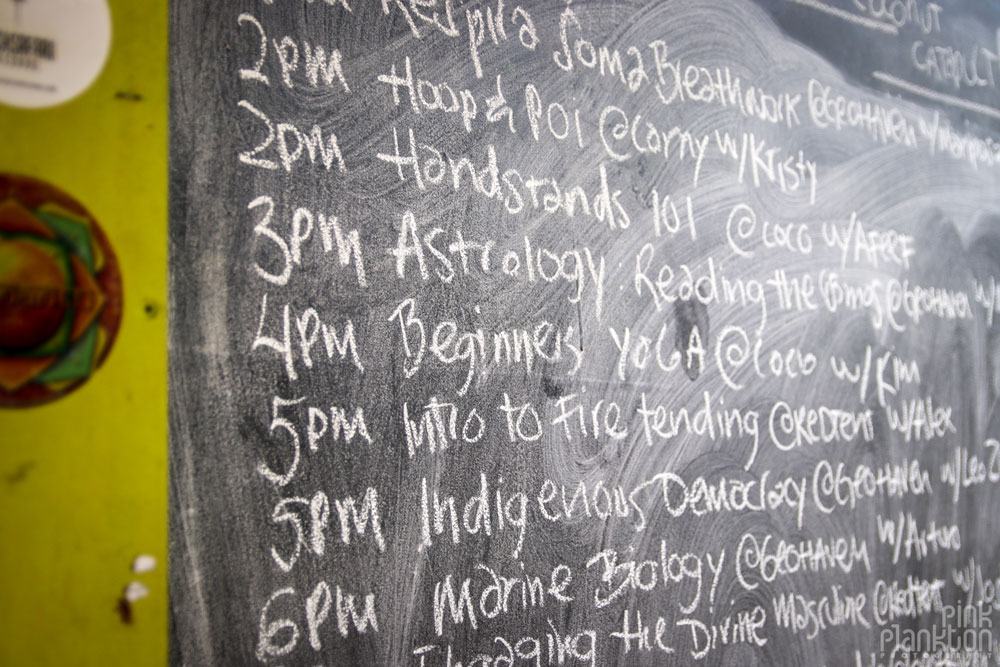 CATAPULT
Respira Soma Breathwork @GEOHAVEN w/Mariposa
2pm Hoop & POI @Carny w/Kristy
2pm Handstands 101 @COCO w/AFEEF
3pm Astrology Reading the Cosmos @GEOHAVEN
4pm Beginners YOGA @COCO w/Kim
5pm Intro to Fire tending @REDTENT w/Alex
5pm Indigenous Democracy @GEOHAVEN w/Leo
6pm Marine Biology @GEOHAVEN w/Arturo
the Divine Masculine @REDTENT
pink plankton
PHOTOGRAPHY